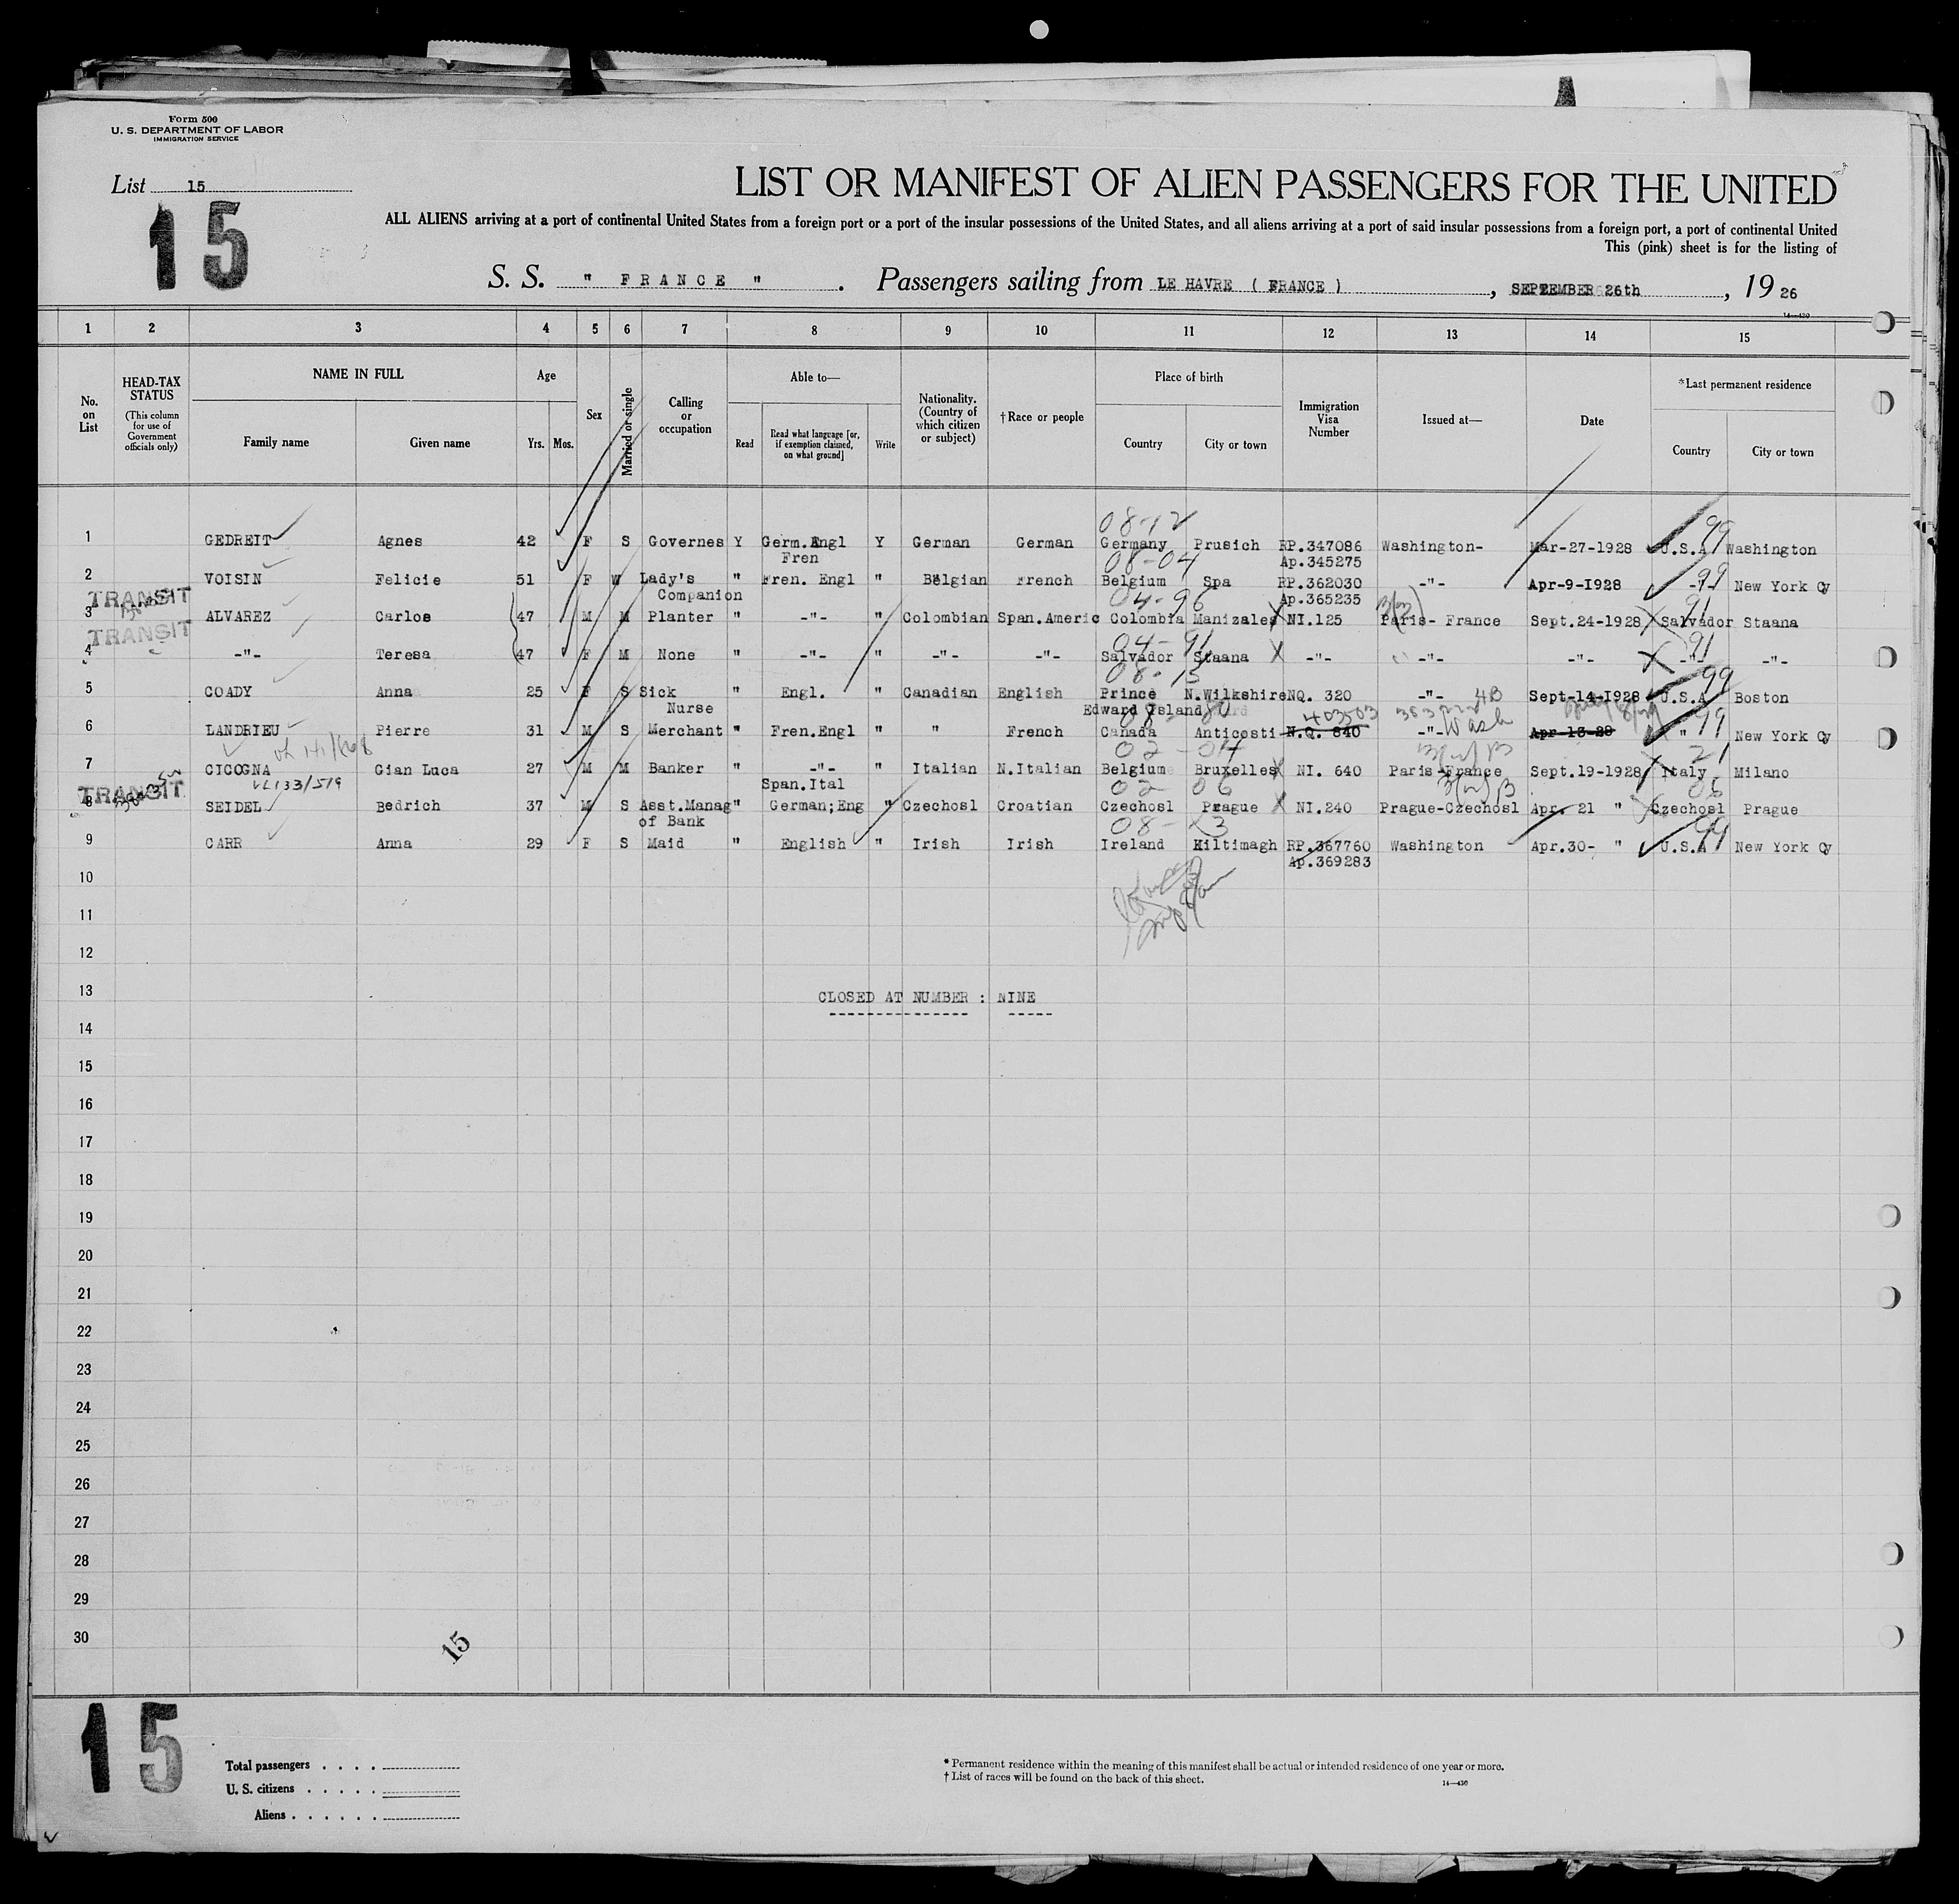 Form 500
U. S. DEPARTMENT OF LABOR
IMMIGRATION SERVICE
List 15
15
LIST OR MANIFEST OF ALIEN PASSENGERS FOR THE UNITED
ALL ALIENS arriving at a port of continental United States from a foreign port or a port of the insular possessions of the United States, and all aliens arriving at a port of said insular possessions from a foreign port, a port of continental United
This (pink) sheet is for the listing of
S. S. " FRANCE " . Passengers sailing from LE HAVRE ( FRANCE ) , SEPTEMBER 26th , 19 26
14—430
1 2 3 4 5 6 7 8 9 10 11 12 13 14 15
No. on List
HEAD-TAX STATUS
(This column for use of Government officials only)
NAME IN FULL
Family name Given name
Age
Yrs. Mos.
Sex
Married or single
Calling or occupation
Able to—
Read
Read what language [or, if exemption claimed, on what ground]
Write
Nationality. (Country of which citizen or subject)
†Race or people
Place of birth
Country City or town
Immigration Visa Number
Issued at—
Date
*Last permanent residence
Country City or town
08-12 99
1 GEDREIT Agnes 42 F S Governes Y Germ.Engl Y German German Germany Prusich RP.347086 Washington- Mar-27-1928 U.S.A Washington
Fren 08-04 Ap.345275
2 VOISIN Felicie 51 F W Lady's " Fren. Engl " Belgian French Belgium Spa RP.362030 -"- Apr-9-1928 -"- 99 New York Cy
TRANSIT Companion 04-96 Ap.365235 91
3 ALVAREZ Carlos 47 M M Planter " -"- " Colombian Span.Americ Colombia Manizales X NI.125 Paris- France Sept.24-1928 X Salvador Staana
TRANSIT 04-91 91
4 -"- Teresa 47 F M None " -"- " -"- -"- Salvador Staana X -"- -"- -"- X -"- -"-
08-15 99
5 COADY Anna 25 F S Sick " Engl. " Canadian English Prince N.Wilkshire NQ. 320 -"- 4B Sept-14-1928 U.S.A Boston
Nurse Edward Island
403503 Wash 99
6 LANDRIEU Pierre 31 M S Merchant " Fren.Engl " " French Canada Anticosti N.Q. 840 -"- Apr-13-28 " New York Cy
02-04 21
7 CICOGNA Gian Luca 27 M M Banker " -"- " Italian N.Italian Belgium Bruxelles X NI. 640 Paris-France Sept.19-1928 X Italy Milano
TRANSIT VL133/519 Span.Ital 02 06 06
8 SEIDEL Bedrich 37 M S Asst.Manag " German;Eng " Czechosl Croatian Czechosl Prague X NI.240 Prague-Czechosl Apr. 21 " X Czechosl Prague
of Bank 08- 99
9 CARR Anna 29 F S Maid " English " Irish Irish Ireland Kiltimagh RP.367760 Washington Apr.30- " U.S.A New York Cy
Ap.369283
10
11
12
13 CLOSED AT NUMBER : NINE
14
15
16
17
18
19
20
21
22
23
24
25
26
27
28
29
30
15
15
Total passengers
U. S. citizens
Aliens
* Permanent residence within the meaning of this manifest shall be actual or intended residence of one year or more.
† List of races will be found on the back of this sheet.
14—430